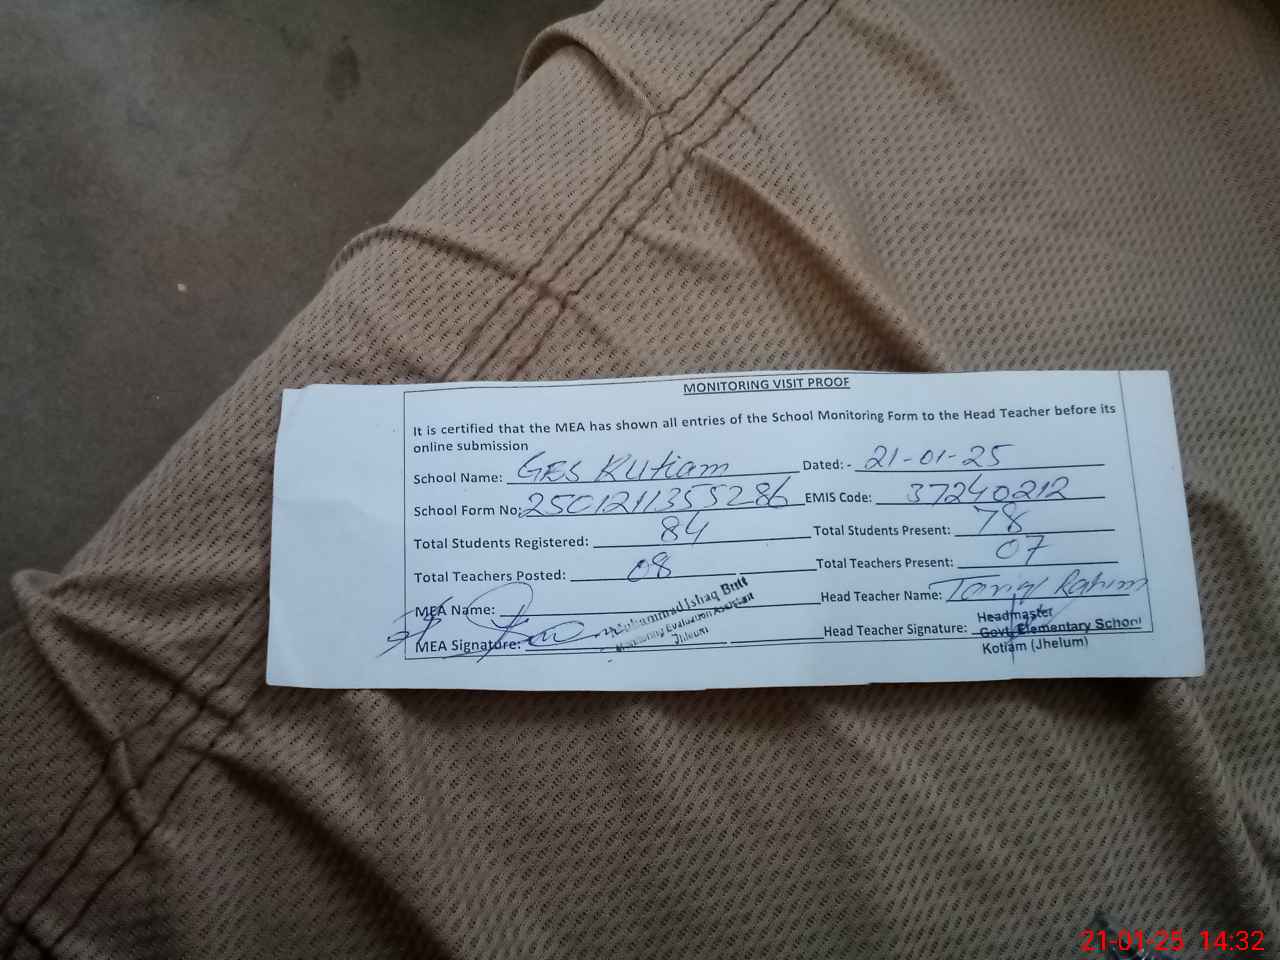 MONITORING VISIT PROOF
It is certified that the MEA has shown all entries of the School Monitoring Form to the Head Teacher before its
online submission
School Name: GES Kutiam Dated: - 21-01-25
School Form No: 2501211355286 EMIS Code: 37240212
Total Students Registered: 84 Total Students Present: 78
Total Teachers Posted: 08 Total Teachers Present: 07
MEA Name: Head Teacher Name: Tariq Rahim
MEA Signature: Head Teacher Signature:
Muhammad Ishaq Butt
Monitoring Evaluation Assistant
Jhelum
Headmaster
Govt. Elementary School
Kotiam (Jhelum)
21-01-25 14:32